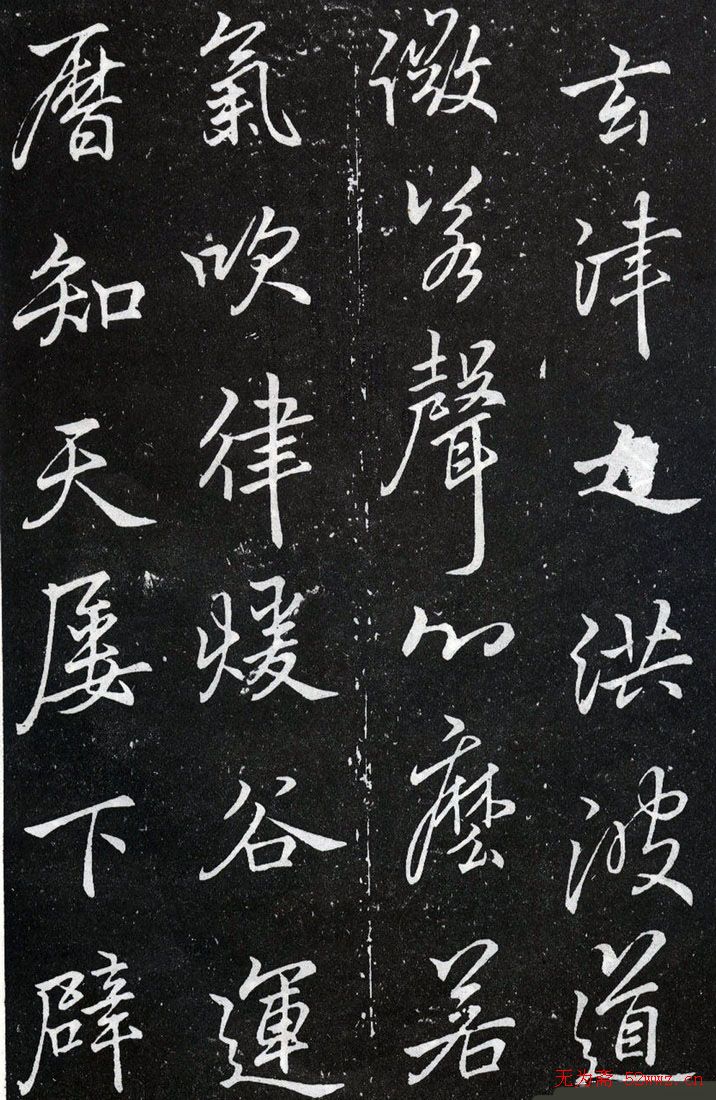 玄津洪波道
微聲心麼若
氣吹律暖谷運
曆知天屢下辟
无为斋 52wwz.cn